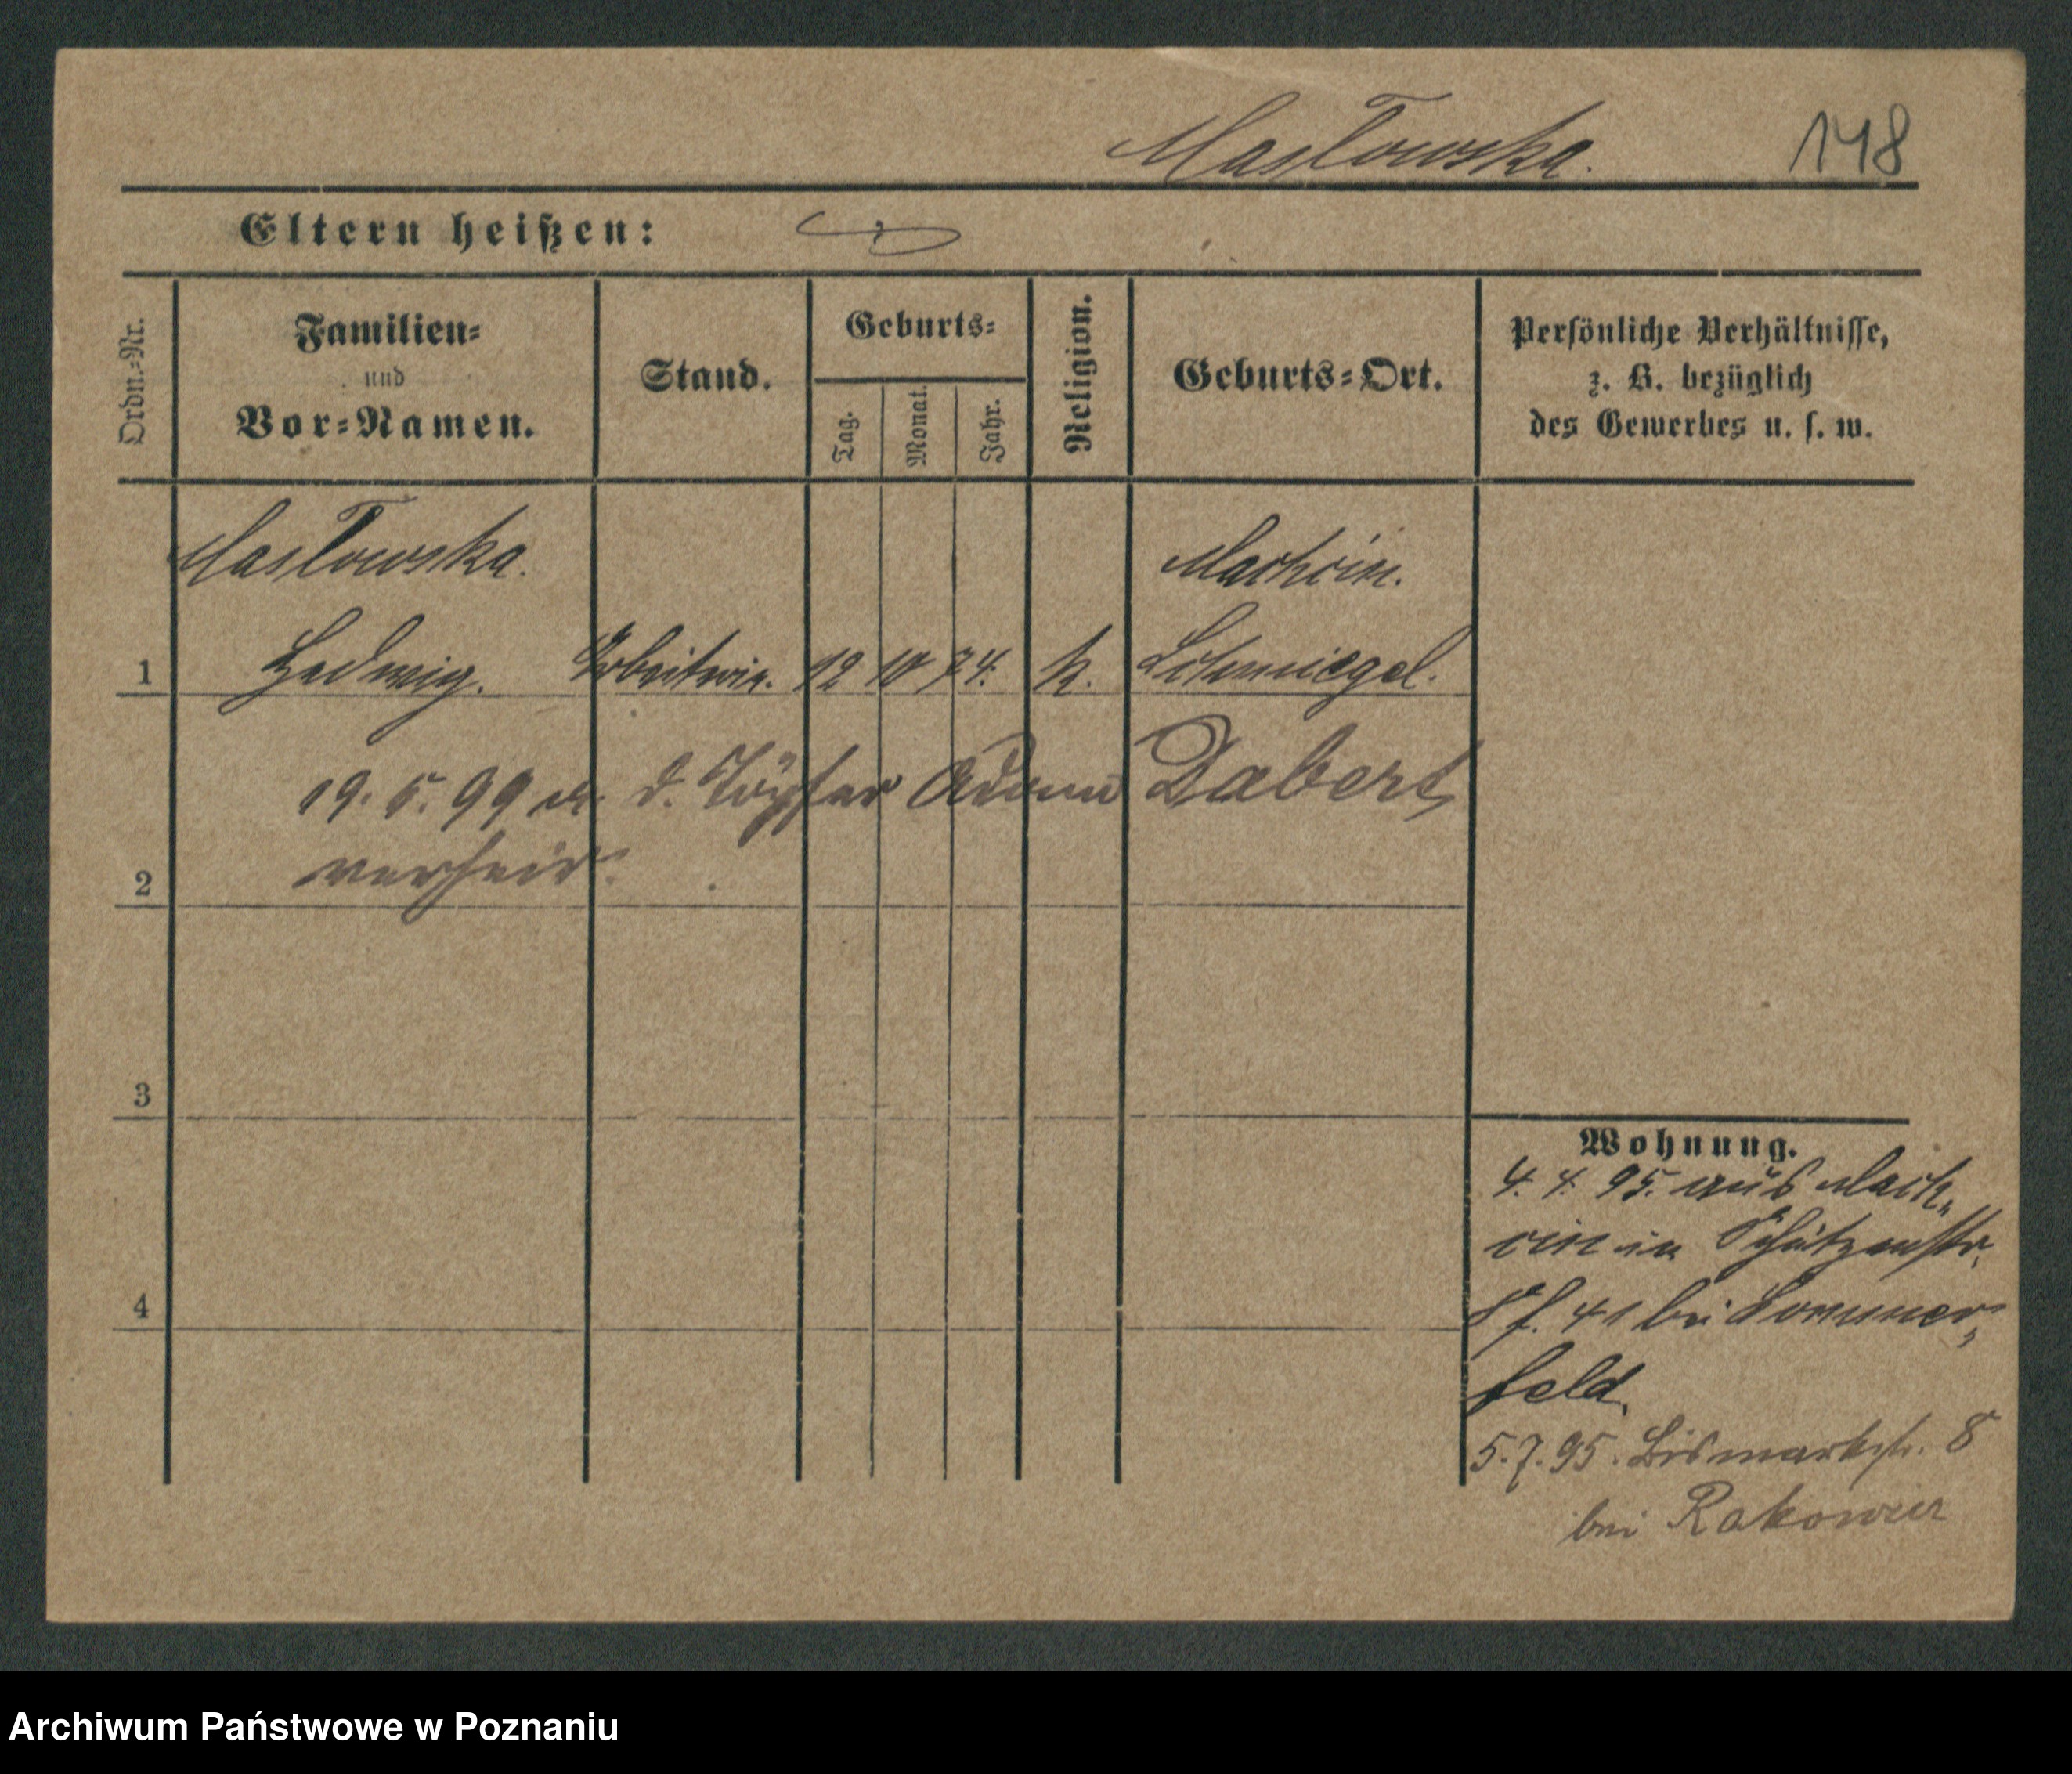 Masłowska.
148
Eltern heißen:
Ordn.-Nr.
Familien-
und
Vor-Namen.
Stand.
Geburts-
Tag.
Monat.
Jahr.
Religion.
Geburts-Ort.
Persönliche Verhältnisse,
z. B. bezüglich
des Gewerbes u. s. w.
Masłowska.
Machcin.
1 Hedwig. Arbeiterin. 12 10 74. k. Schmiegel.
19. 5. 99 m. d. Töpfer Adam Dabert
2 verheir.
3
Wohnung.
4. 4. 95. aus Mach„
cin in Schützenstr.
4
41 bei Sommer„
feld.
5. 7. 95. Bismarkstr. 8
bei Rakowicz
Archiwum Państwowe w Poznaniu